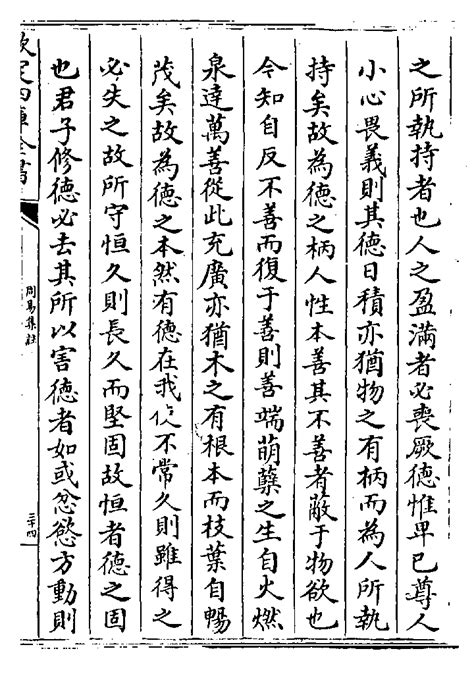 之所執持者也人之盈滿者必喪厥德惟卑已尊人
小心畏義則其德日積亦猶物之有柄而為人所執
持矣故為德之柄人性本善其不善者蔽于物欲也
今知自反不善而復于善則善端萌蘖之生自火燃
泉達萬善從此充廣亦猶木之有根本而枝葉自暢
茂矣故為德之本然有德在我使不常久則雖得之
必失之故所守恒久則長久而堅固故恒者德之固
也君子修德必去其所以害德者如或忿慾方動則
欽定四庫全書
周易集註
二十四